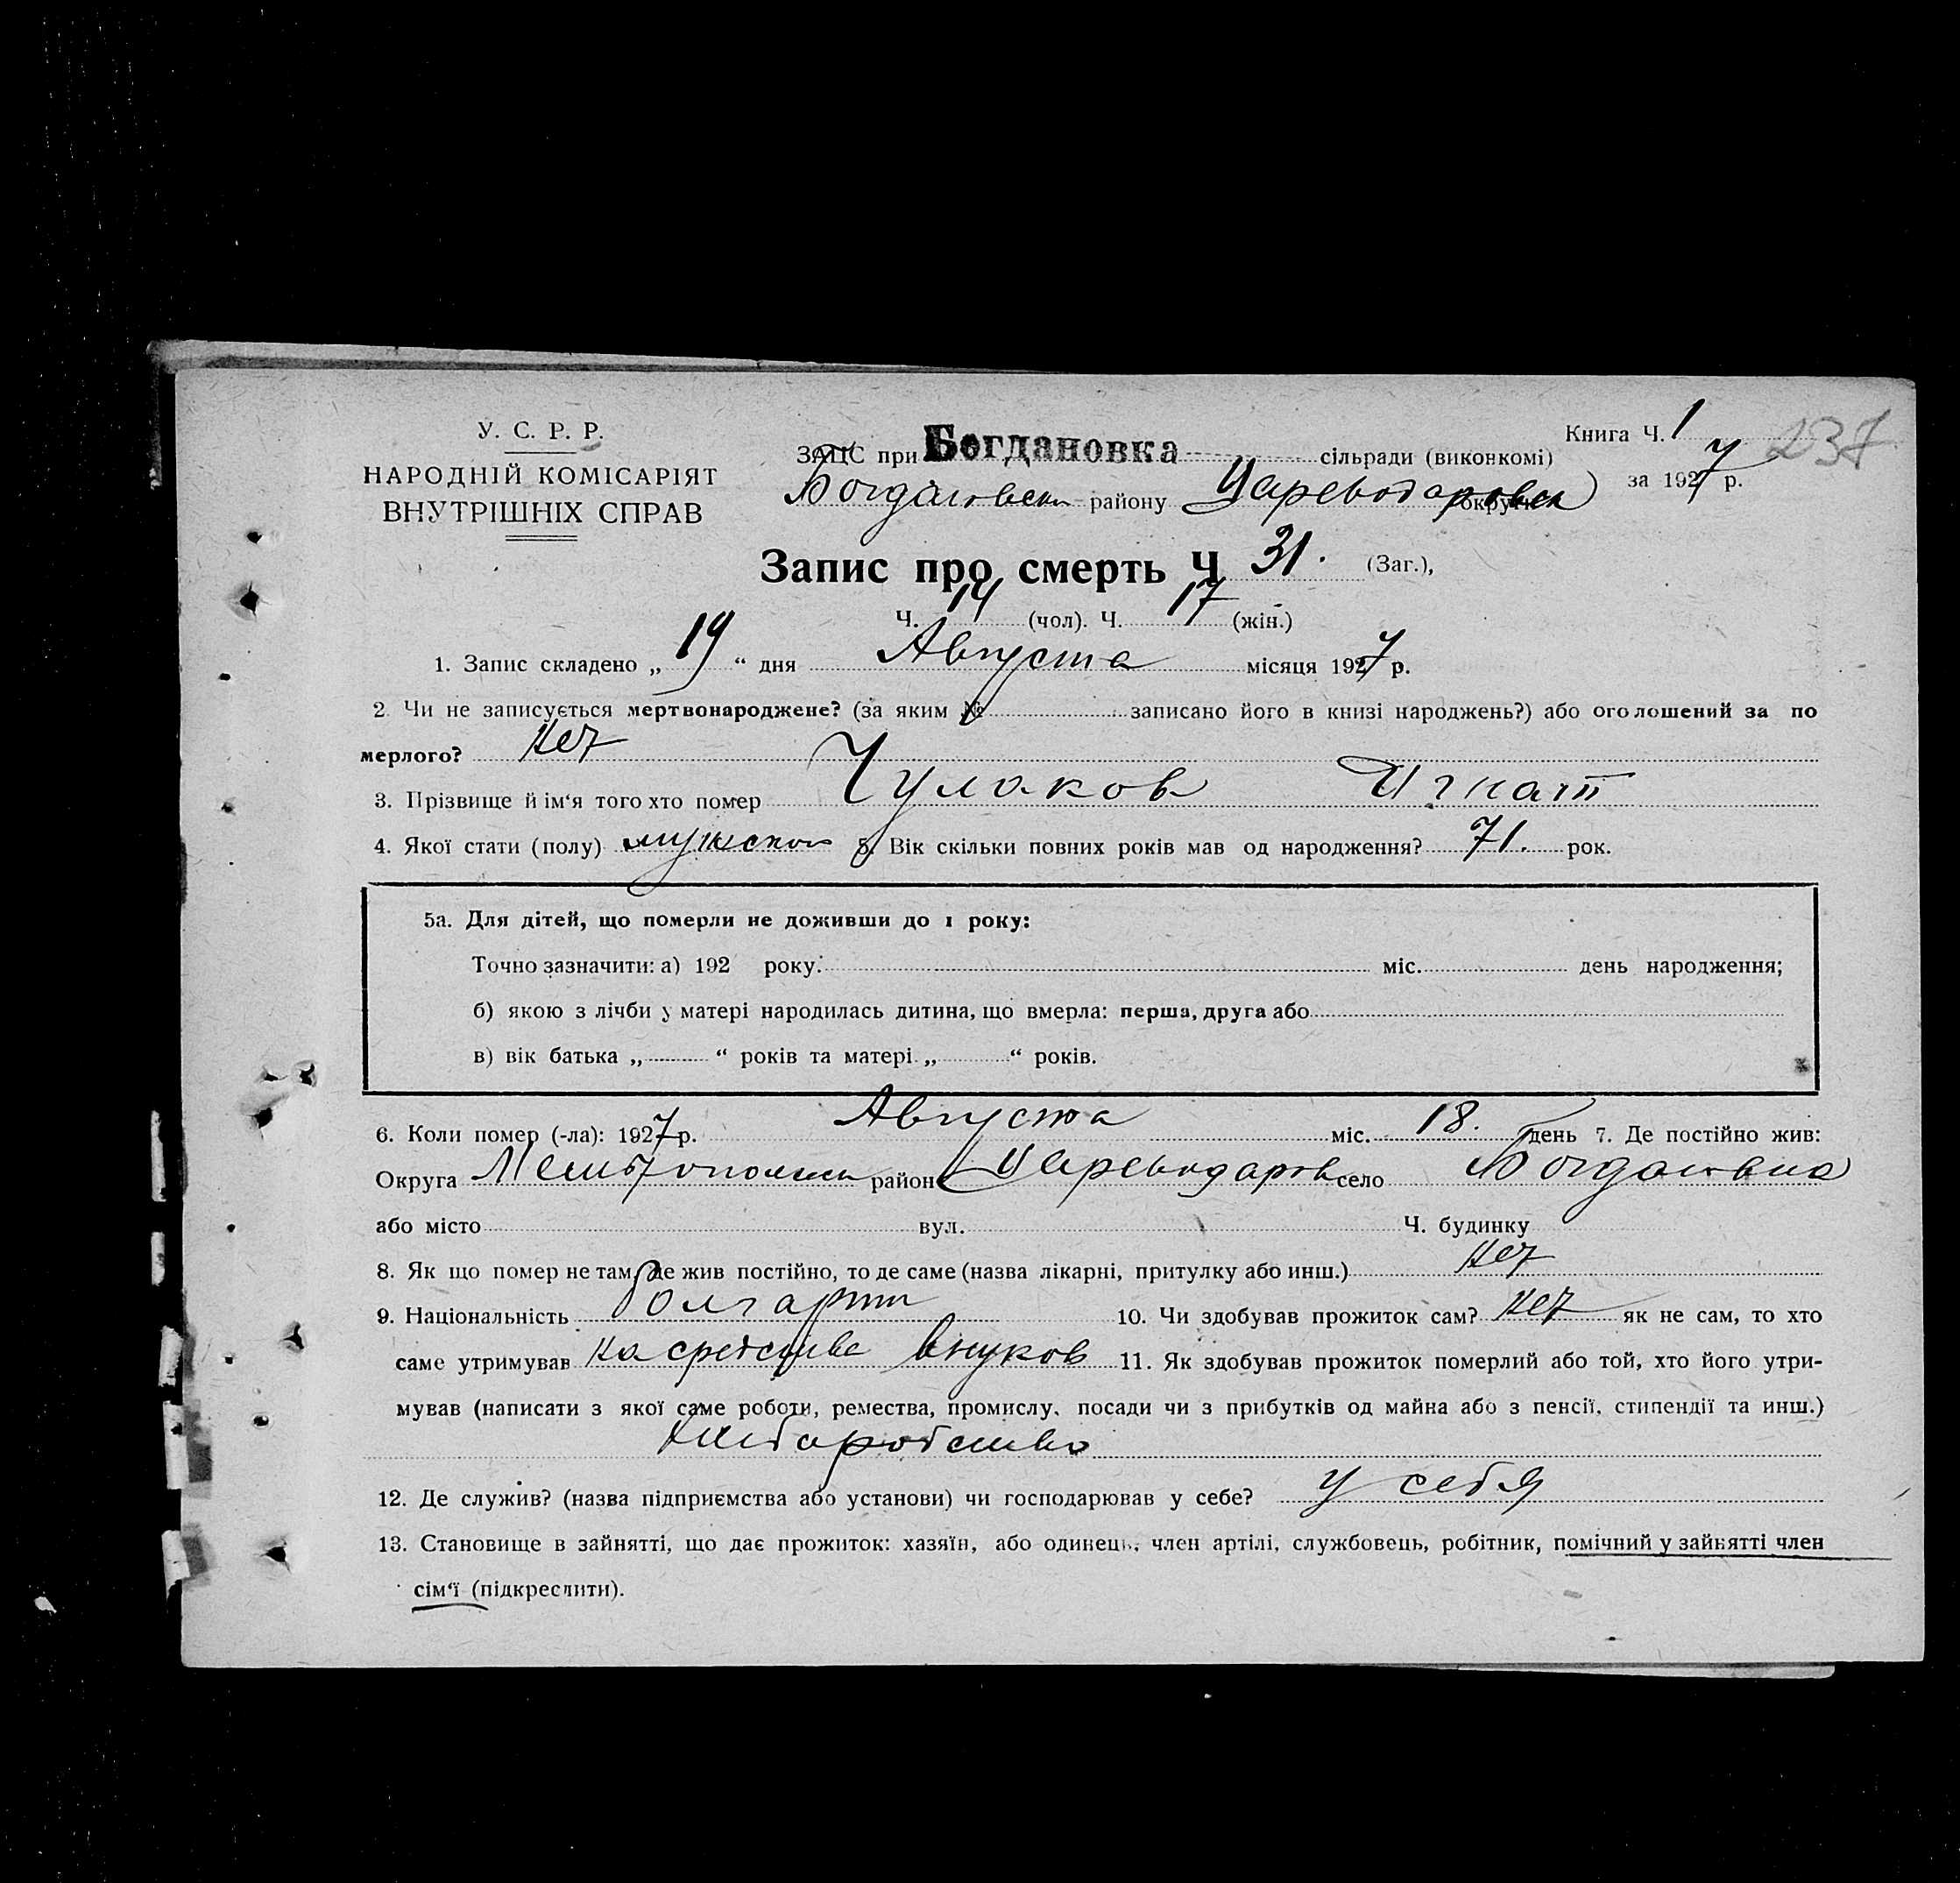 У. С. Р. Р.
НАРОДНІЙ КОМІСАРІЯТ
ВНУТРІШНІХ СПРАВ
Книга Ч. 1
237
ЗАПС при Богдановка сільради (виконкомі)
за 1927 р.
району Цареводаровск округи
Запис про смерть Ч 31. (Заг.),
Ч. 14 (чол). Ч. 17 (жін.)
1. Запис складено „ 19 “ дня Августа місяця 1927 р.
2. Чи не записується мертвонароджене? (за яким № записано його в книзі народжень?) або оголошений за по
мерлого? нет
3. Прізвище й ім‘я того хто помер Чулаков Игнат
4. Якої стати (полу) мужскои 5. Вік скільки повних років мав од народження? 71. рок.
5а. Для дітей, що померли не доживши до 1 року:
Точно зазначити: а) 192 року. міс. день народження;
б) якою з лічби у матері народилась дитина, що вмерла: перша, друга або
в) вік батька „ “ років та матері „ “ років.
6. Коли помер (-ла): 1927 р. Августа міс. 18. день 7. Де постійно жив:
Округа район Цареводаров село Богдановка
або місто вул. Ч. будинку
8. Як що помер не там, де жив постійно, то де саме (назва лікарні, притулку або инш.) нет
9. Національність 10. Чи здобував прожиток сам? нет як не сам, то хто
саме утримував на средстве внуков 11. Як здобував прожиток померлий або той, хто його утри-
мував (написати з якої саме роботи, ремества, промислу, посади чи з прибутків од майна або з пенсії, стипендії та инш.)
12. Де служив? (назва підприємства або установи) чи господарював у себе? у себя
13. Становище в зайнятті, що дає прожиток: хазяїн, або одинець, член артілі, службовець, робітник, помічний у зайнятті член
сім‘ї (підкреслити).